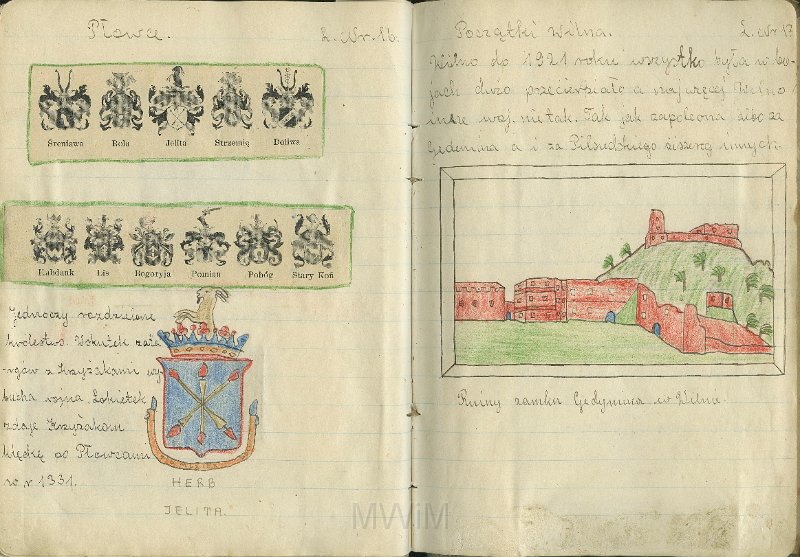 Płowce. L. Nr. 16.
Sreniawa Rola Jelita Strzemię Doliwa
Habdank Lis Bogoryja Pomian Pobóg Stary Koń
Jednoczy rozdzielone
królestwo. Wskutek zata-
rgów z Krzyżakami wy-
bucha wojna. Łokietek
zdaje Krzyżakom
klęskę po Płowcami
w r 1331.
HERB
JELITA.
Początki Wilna. L. Nr 17
Wilno do 1921 roku wszystko była w bo-
jach dużo przecierpiało a najwięcej Wilno
inne woj. nie tak. Tak jak za
Gedymina a i za Piłsudskiego innych.
Ruiny zamku Gedymina w Wilnie.
MWiM